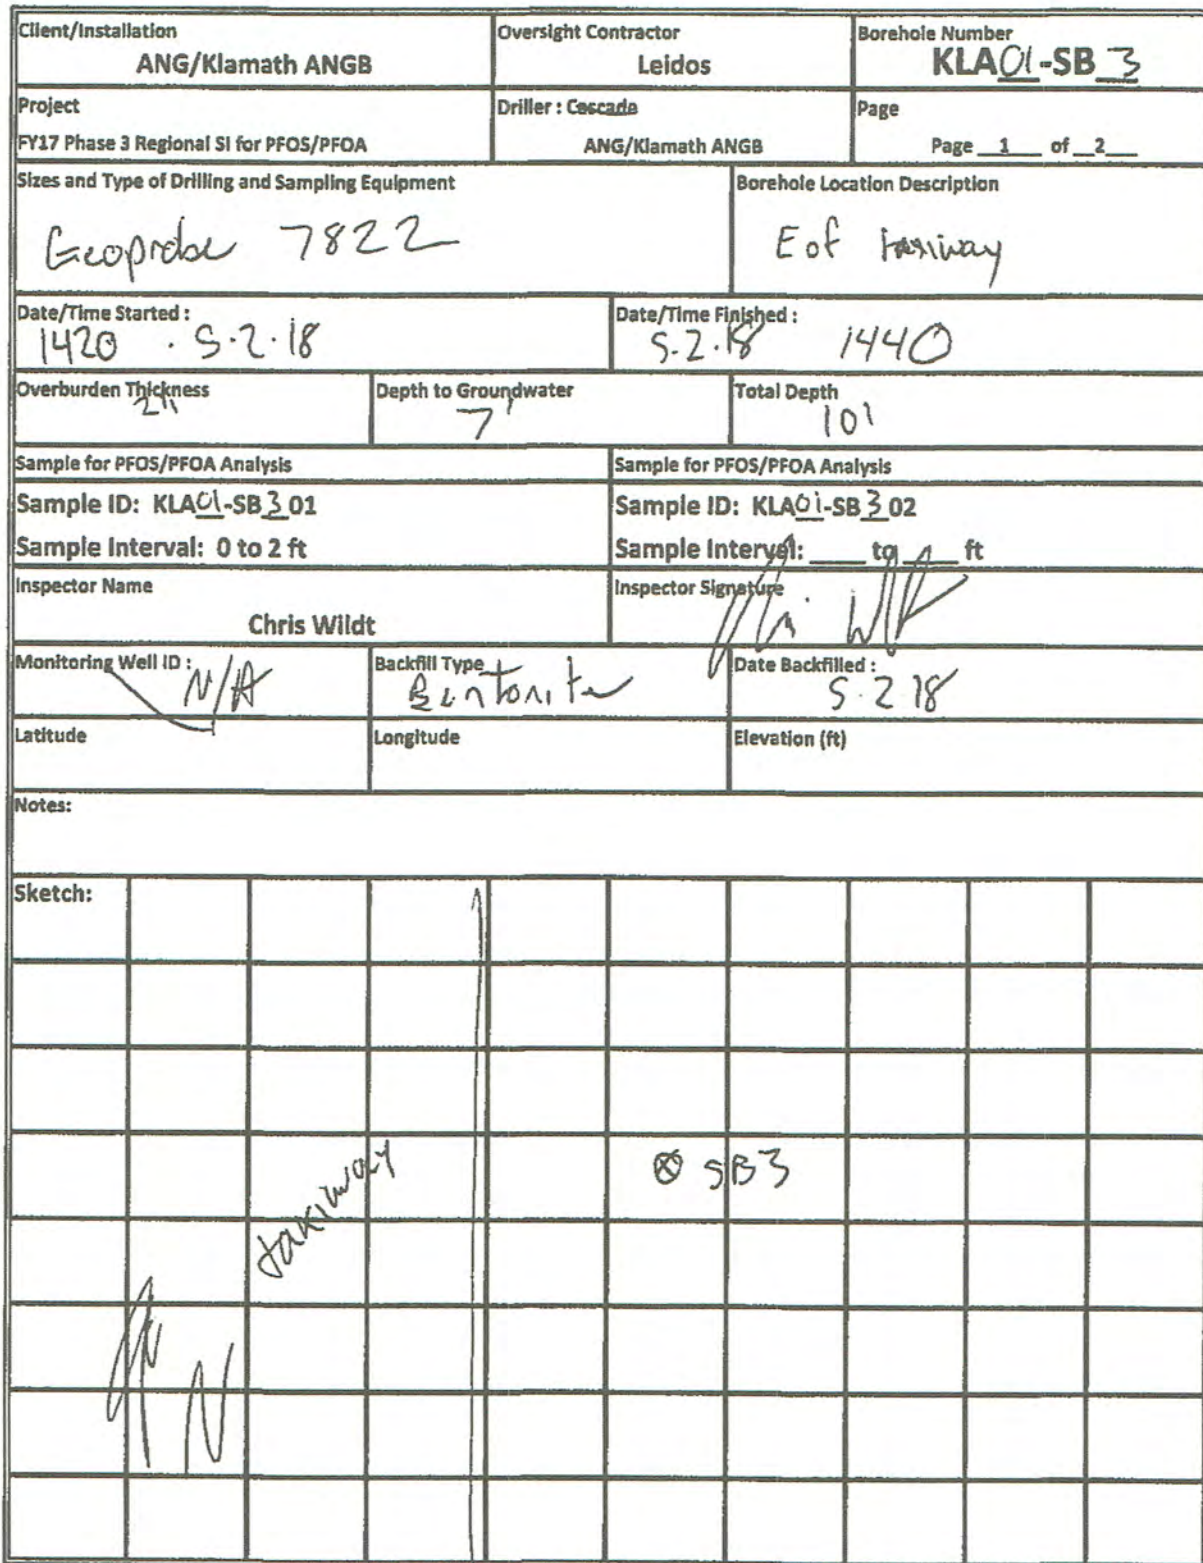 Client/Installation
ANG/Klamath ANGB
Oversight Contractor
Leidos
Borehole Number
KLA01-SB 3
Project
FY17 Phase 3 Regional SI for PFOS/PFOA
Driller : Cascade
ANG/Klamath ANGB
Page
Page 1 of 2
Sizes and Type of Drilling and Sampling Equipment
Geoprobe 7822
Borehole Location Description
E of taxiway
Date/Time Started :
1420 . 5.2.18
Date/Time Finished :
5.2.18 1440
Overburden Thickness
2"
Depth to Groundwater
7'
Total Depth
10'
Sample for PFOS/PFOA Analysis
Sample ID: KLA01-SB 3 01
Sample Interval: 0 to 2 ft
Sample for PFOS/PFOA Analysis
Sample ID: KLA01-SB 3 02
Sample Interval: ____ to ____ ft
Inspector Name
Chris Wildt
Inspector Signature
Monitoring Well ID :
N/A
Backfill Type
Bentonite
Date Backfilled :
5.2 18
Latitude
Longitude
Elevation (ft)
Notes:
Sketch:
taxiway
SB3
N